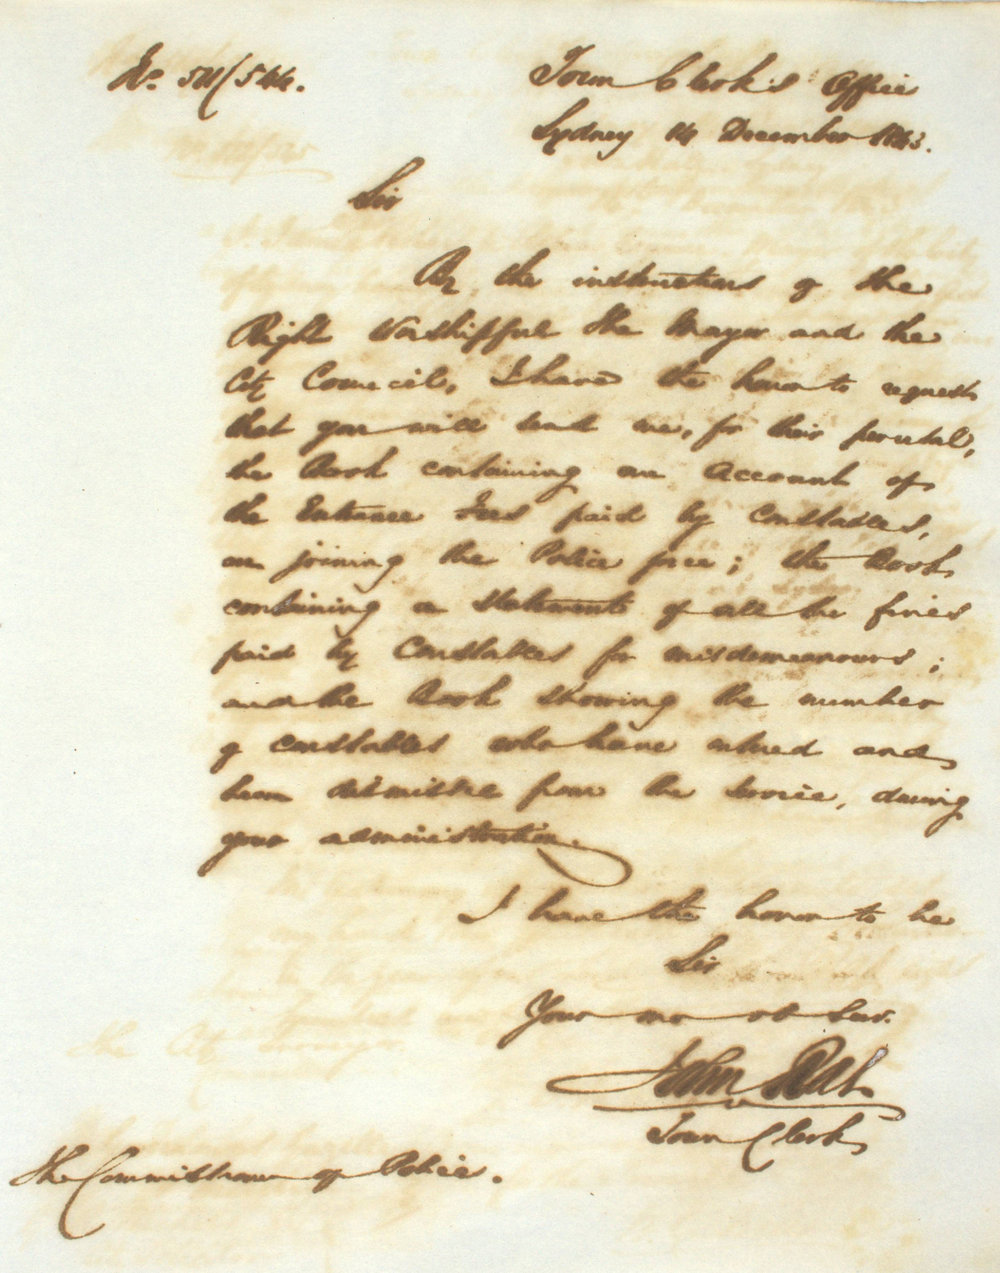 Town Clerk's Office
Sydney 14 December 1843.
Sir
By the instructions of the
Right Worshipful the Mayor and the
City Council, I have the honor to request
that you will lend me, for their perusal,
the Book containing an Account of
the Entrance Fees paid by Constables,
on joining the Police force; the Book
containing a statement of all the fines
paid by Constables for misdemeanours;
and the Book showing the number
of constables who have entered and
been dismissed from the Service, during
your administration.
I have the honor to be
Sir
Your mo ob Serv.
John Rae
Town Clerk
The Commissioner of Police.